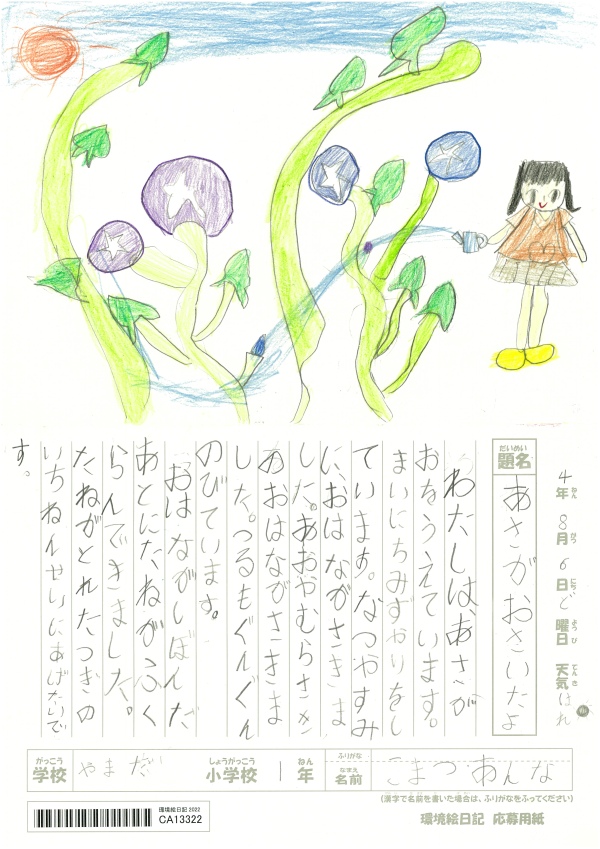 4年 8月 6日 ど曜日 天気 はれ
ねん がつ にち ようび てんき
だいめい
題名 あさがおさいたよ
わたしは、あさが
おをうえています。
まいにちみずやりをし
ています。なつやすみ
に、おはながさきま
した。あおやむらさき
のおはながさきま
した。つるもぐんぐん
のびています。
おはながしぼんだ
あとにたねがふく
らんできました。
たねがとれたつぎの
いちねんせいにあげたいで
す。
がっこう しょうがっこう ねん ふりがな
学校 やまだ 小学校 1年 なまえ 名前 こまつ あんな
(漢字で名前を書いた場合は、ふりがなをふってください)
環境絵日記 2022
CA13322
環境絵日記 応募用紙